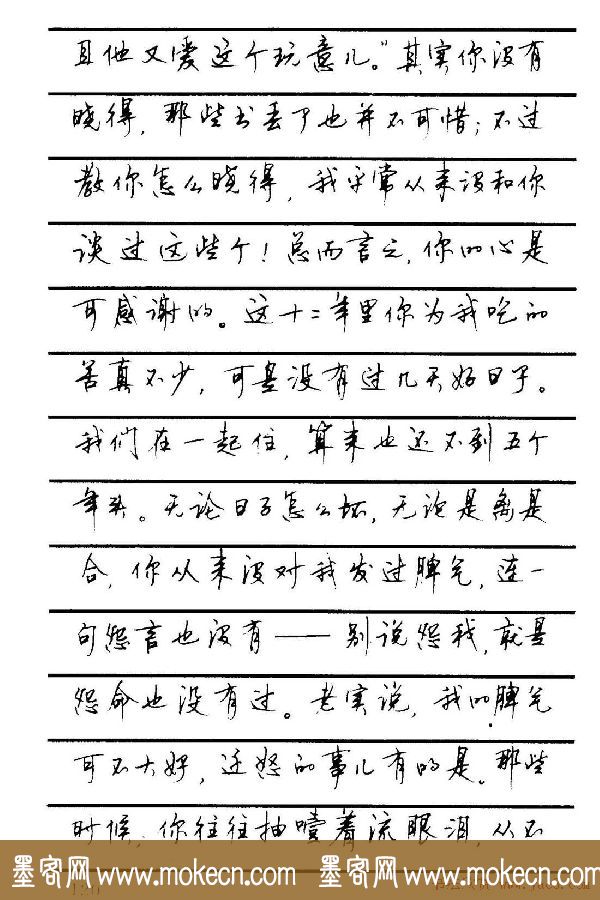 且他又爱这个玩意儿。”其实你没有
晓得，那些书丢了也并不可惜；不过
教你怎么晓得，我平常从来没和你
谈过这些个！总而言之，你的心是
可感谢的。这十二年里你为我吃的
苦真不少，可是没有过几天好日子。
我们在一起住，算来也还不到五个
年头。无论日子怎么坏，无论是离是
合，你从来没对我发过脾气，连一
句怨言也没有——别说怨我，就是
怨命也没有过。老实说，我的脾气
可不大好，迁怒的事儿有的是。那些
时候，你往往抽噎着流眼泪，从不
墨客网 www.mokecn.com 墨客网 www.mokecn.com